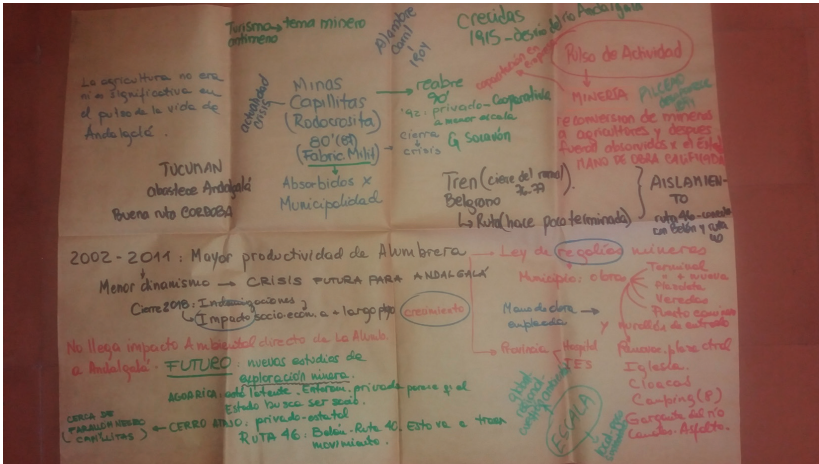 Turismo → tema minero
antimeno
Alambre
Carril
1904
Crecidas
1915 - desvío del río Andalgalá
Pulso de Actividad
La agricultura no era
más significativa en
el pulso de la vida de
Andalgalá.
actualidad
crisis
Minas
Capillitas
(Rodocrosita)
80' (87)
(Fabric Milit)
Absorbidos x
Municipalidad
→ reabre
90'
'92: privado - Cooperativa
a menor escala
cierra
crisis
G Socavón
capacitación en
MINERÍA
PILCIAO
reconversion de mineros
a agricultores y después
fueron absorvidos x el Estado
MANO DE OBRA CALIFICADA
TUCUMAN
abastece Andalgalá
Buena ruta CORDOBA
Tren (cierre del ramal)
76-77
Belgrano
↳ Ruta (hace poco terminada)
AISLAMIEN-
TO
ruta 46 - conecta
con Belén y ruta
40
2002 - 2011: Mayor productividad de Alumbrera
Menor dinamismo → CRISIS FUTURA PARA ANDALGALÁ
Cierre 2018: Indemnizaciones
↳ Impacto socio-econ. a + largo plazo
crecimiento
→ Ley de regalías mineras
Municipio: obras
Terminal
" + nueva
Plazoleta
Veredas
Mano de obra →
empleada
y
→ Provincia
Hospital
IES
Iglesia.
Cloacas
Camping (P)
Asfalto.
No llega impacto Ambiental directo de La Alumb.
a Andalgalá.
FUTURO: nuevos estudios de
exploración minera.
AGUA RICA: está latente. privada parece q el
Estado busca ser socio.
CERCA DE
FARALLON NEGRO
(CAPILLITAS)
← CERRO ATAJO: privado-estatal
RUTA 46: Belén - Ruta 40. Esto va a traer
movimiento.
Global
ESCALA